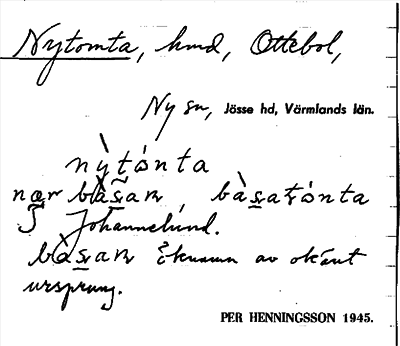 Nytomta, hmd, Ottebol,
Ny sn, Jösse hd, Värmlands län.
nỳtónta
nær bàsar, bàsatónta
Johannelund.
bàsar Öknamn av okänt
ursprung.
PER HENNINGSSON 1945.